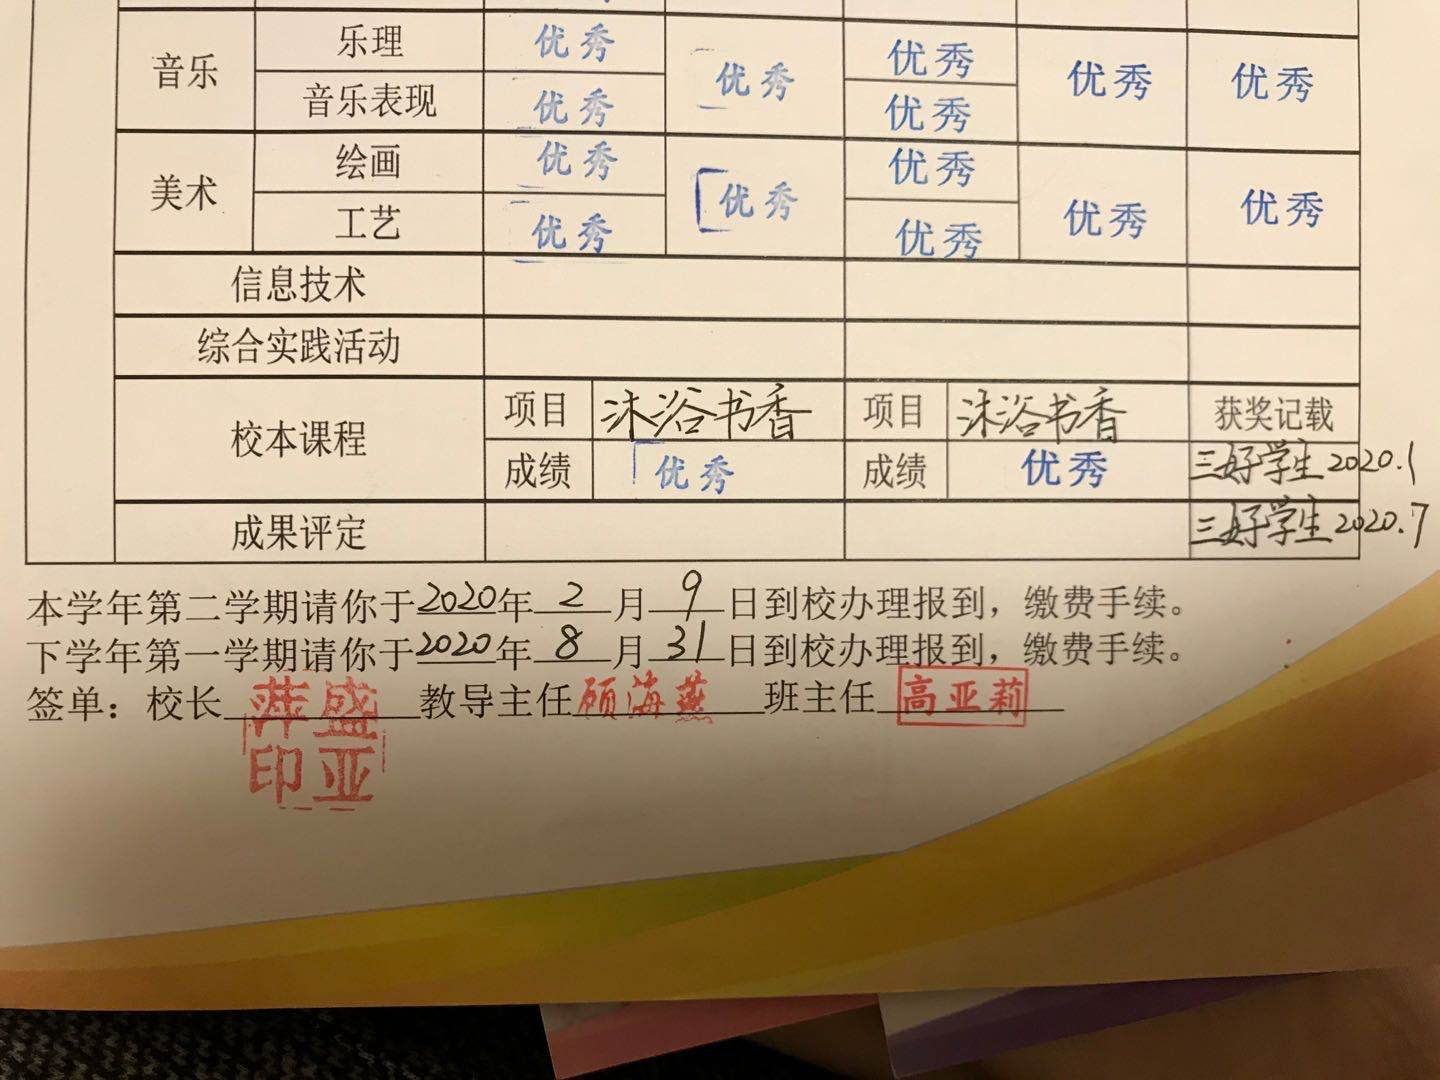 音乐 乐理 优秀 优秀 优秀 优秀 优秀
音乐表现 优秀 优秀
美术 绘画 优秀 优秀 优秀 优秀 优秀
工艺 优秀 优秀
信息技术
综合实践活动
校本课程 项目 沐浴书香 项目 沐浴书香 获奖记载
成绩 优秀 成绩 优秀 三好学生2020.1
成果评定 三好学生2020.7
本学年第二学期请你于2020年2月9日到校办理报到，缴费手续。
下学年第一学期请你于2020年8月31日到校办理报到，缴费手续。
签单：校长 萍盛 教导主任 顾海燕 班主任 高亚莉
印亚